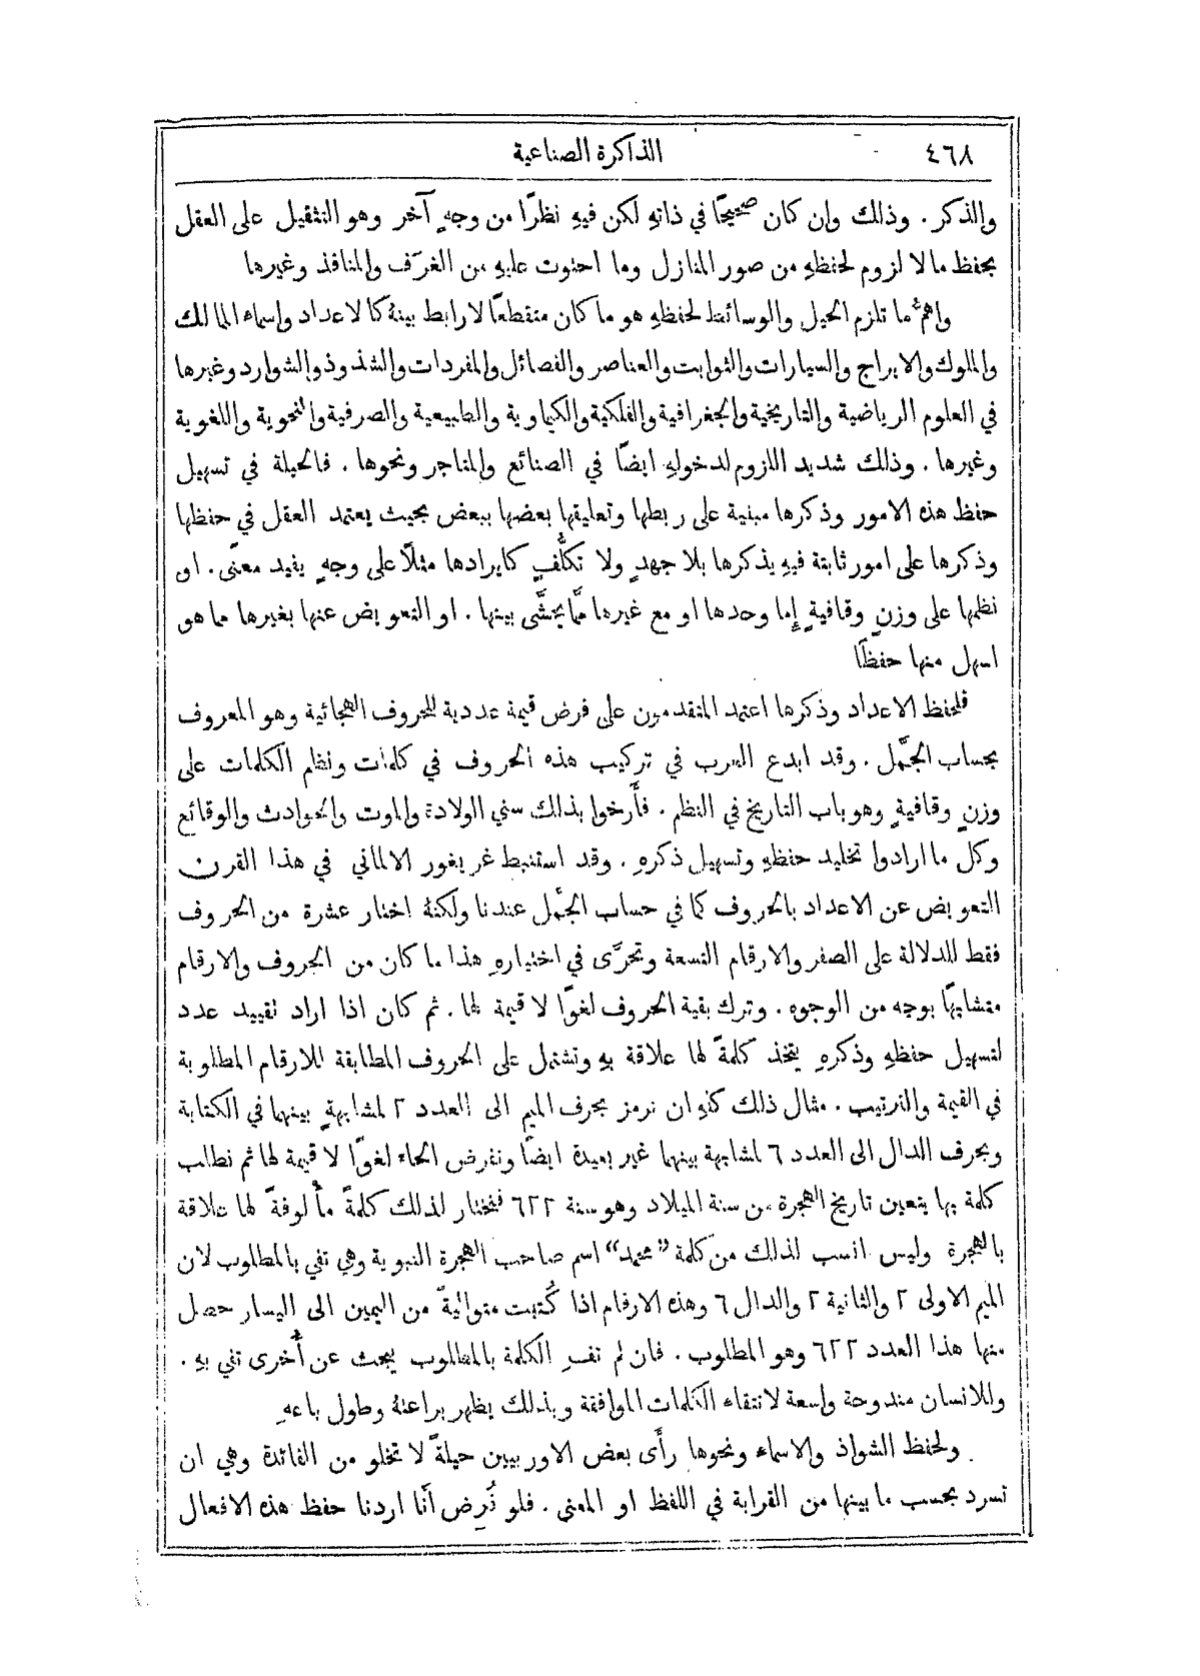 ٤٦٨
الذاكرة الصناعية
والذكر. وذلك وإن كان صحيحًا في ذاتهِ لكن فيهِ نظرًا من وجهٍ آخر وهو التثقيل على العقل
بحفظ ما لا لزوم لحفظهِ من صور المنازل وما احتوت عليهِ من الغرَف والمنافذ وغيرها
واهمُّ ما تلزم الحيل والوسائط لحفظهِ هو ما كان منقطعًا لا رابط بينهُ كالاعداد واسماء الممالك
والملوك والابراج والسيارات والثوابت والعناصر والفصائل والمفردات والشذوذ والشوارد وغيرها
في العلوم الرياضية والتاريخية والجغرافية والفلكية والكيماوية والطبيعية والصرفية والنحوية واللغوية
وغيرها. وذلك شديد اللزوم لدخولهِ ايضًا في الصنائع والمتاجر ونحوها. فالحيلة في تسهيل
حفظ هذه الامور وذكرها مبنية على ربطها وتعليقها بعضها ببعض بحيث يعتمد العقل في حفظها
وذكرها على امور ثابتة فيهِ يذكرها بلا جهدٍ ولا تكلُّفٍ كايرادها مثلًا على وجهٍ يفيد معنًى. او
نظمها على وزنٍ وقافيةٍ إِما وحدها او مع غيرها ممَّا يحشَّى بينها. او التعويض عنها بغيرها مما هو
اسهل منها حفظًا
فلحفظ الاعداد وذكرها اعتمد المتقدمون على فرض قيمة عددية للحروف الهجائية وهو المعروف
بحساب الجمَّل. وقد ابدع العرب في تركيب هذه الحروف في كلمات ونظم الكلمات على
وزنٍ وقافيةٍ وهو باب التاريخ في النظم. فأَرخوا بذلك سني الولادة والموت والحوادث والوقائع
وكل ما ارادوا تخليد حفظهِ وتسهيل ذكرهِ. وقد استنبط غريغور الالماني في هذا القرن
التعويض عن الاعداد بالحروف كما في حساب الجمَّل عندنا ولكنهُ اختار عشرة من الحروف
فقط للدلالة على الصفر والارقام التسعة وتحرَّى في اختيارهِ هذا ما كان من الحروف والارقام
متشابهًا بوجه من الوجوه. وترك بقية الحروف لغوًا لا قيمة لها. ثم كان اذا اراد تقييد عدد
لتسهيل حفظهِ وذكرهِ يتخذ كلمةً لها علاقة بهِ وتشتمل على الحروف المطابقة للارقام المطلوبة
في القيمة والترتيب. مثال ذلك كنهِ ان نرمز بحرف الميم الى العدد ٢ لمشابهةٍ بينهما في الكتابة
وبحرف الدال الى العدد ٦ لمشابهة بينهما غير بعيدة ايضًا ونفرض الحاء لغوًا لا قيمة لها ثم نطلب
كلمة بها يتعين تاريخ الهجرة من سنة الميلاد وهو سنة ٦٢٢ فنختار لذلك كلمةً مأْلوفةً لها علاقة
بالهجرة وليس انسب لذلك من كلمة "محمد" اسم صاحب الهجرة النبوية وهي تفي بالمطلوب لان
الميم الاولى ٢ والثانية ٢ والدال ٦ وهذه الارقام اذا كُتبت متواليةً من اليمين الى اليسار حصل
منها هذا العدد ٦٢٢ وهو المطلوب. فان لم تفِ الكلمة بالمطلوب يبحث عن أُخرى تفي بهِ.
وللانسان مندوحة واسعة لانتقاء الكلمات الموافقة وبذلك يظهر براعتهُ وطول باعهِ
ولحفظ الشواذ والاسماء ونحوها رأَى بعض الاوربيين حيلةً لا تخلو من الفائدة وهي ان
تسرد بحسب ما بينها من القرابة في اللفظ او المعنى. فلو فُرِض أَنَّا اردنا حفظ هذه الافعال